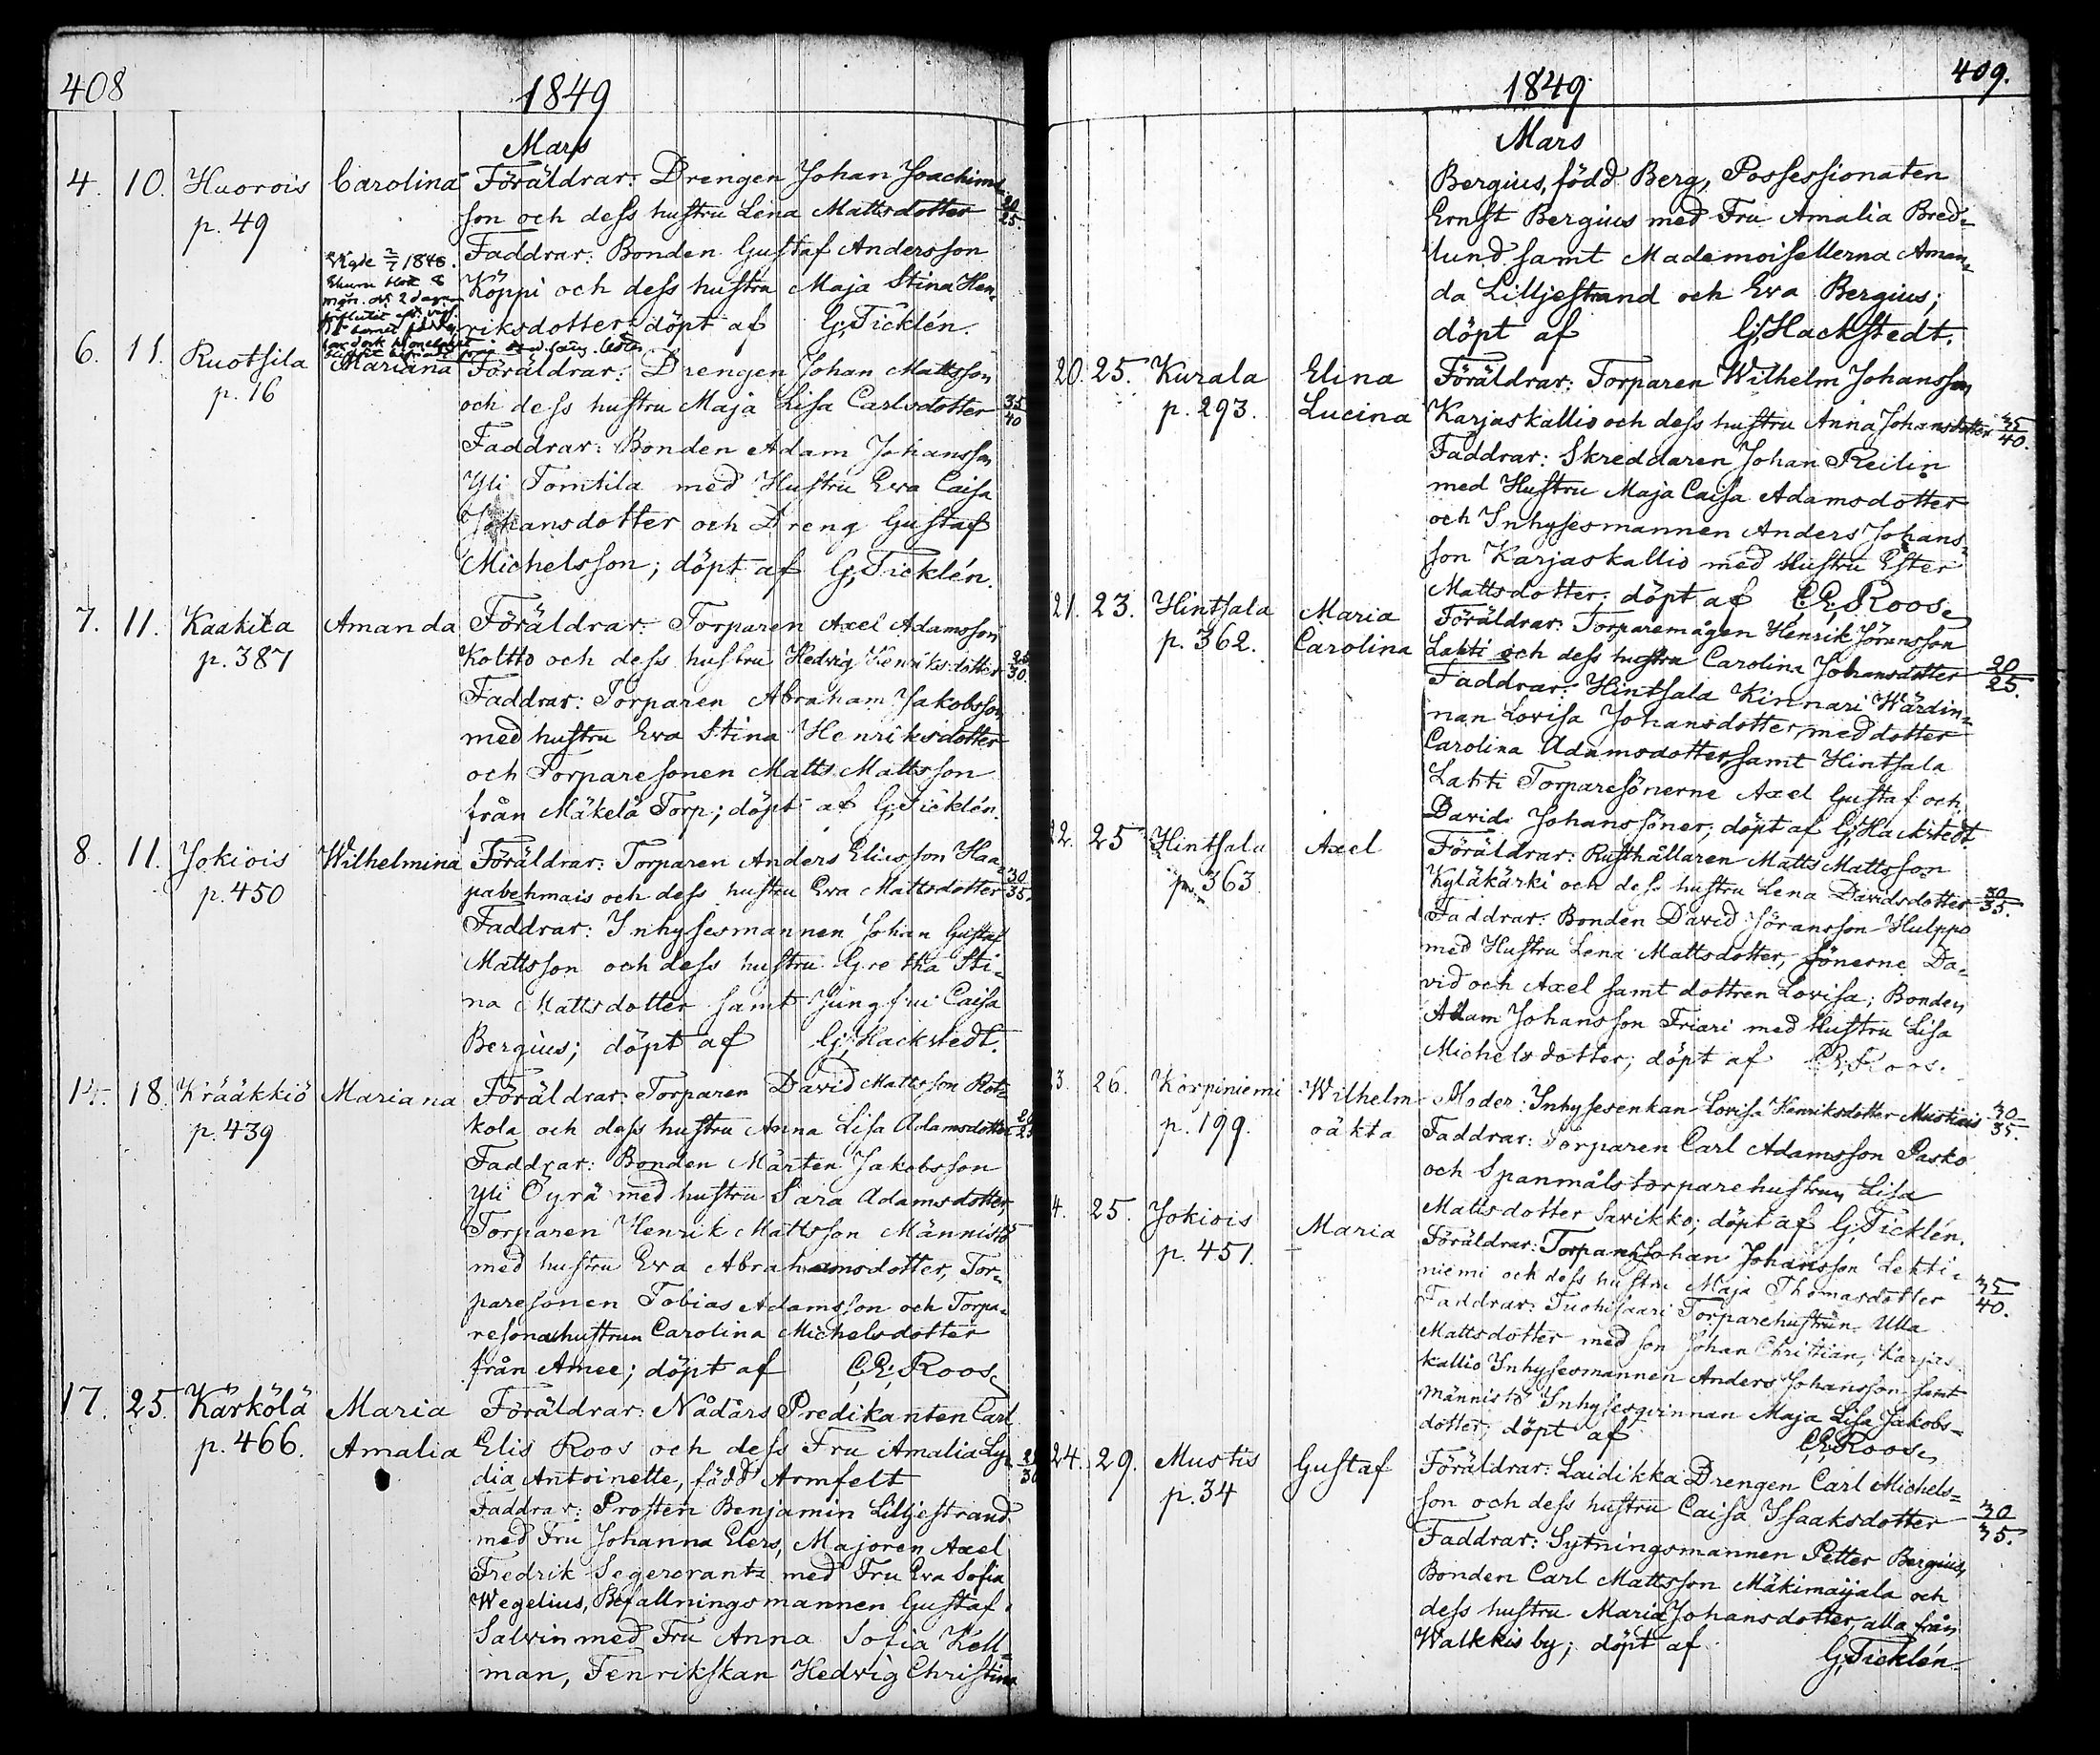 408
1849
Mars
4. 10. Huorois Carolina Föräldrar: Drengen Johan Joachims
p. 49 son och dess hustru Lena Mattsdotter 20/25.
Faddrar: Bonden Gustaf Andersson
Vigde 2/7 1848.
Köppi och dess hustru Maja Stina Hen-
riksdotter döpt af G; Ticklén.
6. 11. Ruotsila Mariana Föräldrar: Drengen Johan Mattsson
p. 16 och dess hustru Maja Lisa Carlsdotter 35/40
Faddrar: Bonden Adam Johansson
Yli Tomtila med Hustru Eva Caisa
Johansdotter och Dreng Gustaf
Michelsson; döpt af G; Ticklén.
7. 11. Kaakila Amanda Föräldrar: Torparen Axel Adamsson
p. 387 Koltto och dess hustru Hedvig Henriksdotter 25/30.
Faddrar: Torparen Abraham Jakobsson
med hustru Eva Stina Henriksdotter
och Torparesonen Matts Mattsson
från Mäkelä Torp; döpt af G; Ticklén.
8. 11. Jokiois Wilhelmina Föräldrar: Torparen Anders Eliasson Haa-
p. 450 pabehmais och dess hustru Eva Mattsdotter 30/35.
Faddrar: Inhysesmannen Johan Gustaf
Mattsson och dess hustru Gretha Sti-
na Mattsdotter samt Jungfru Caisa
Bergius; döpt af G; Hackstedt.
14. 18. Krääkkiö Mariana Föräldrar: Torparen David Mattsson Rot-
p. 439 kola och dess hustru Anna Lisa Adamsdotter 20/25
Faddrar: Bonden Mårten Jakobsson
Yli Öyrä med hustru Sara Adamsdotter,
Torparen Henrik Mattsson Männistö
med hustru Eva Abrahamsdotter, Tor-
paresonen Tobias Adamsson och Torpa-
resonahustrun Carolina Michelsdotter
från Amee; döpt af C; E; Roos.
17. 25. Kärkölä Maria Föräldrar: Nådårs Predikanten Carl
p. 466. Amalia Elis Roos och dess Fru Amalia Ly-
dia Antoinette, född Armfelt
Faddrar: Prosten Benjamin Lilljestrand
med Fru Johanna Elers, Majoren Axel
Fredrik Segercrantz med Fru Eva Sofia
Wegelius, Befallningsmannen Gustaf
Salvin med Fru Anna Sofia Kell-
man, Fenrikskan Hedvig Christina
409.
1849
Mars
Bergius, född Berg, Possessionaten
Ernst Bergius med Fru Amalia Bred-
lund samt Mademoisellerna Aman-
da Lilljestrand och Eva Bergius;
döpt af G; Hackstedt.
20. 25. Kurala Elina Föräldrar: Torparen Wilhelm Johansson
p. 293. Lucina Karjaskallio och dess hustru Anna Johansdotter 35/40.
Faddrar: Skreddaren Johan Reilin
med Hustru Maja Caisa Adamsdotter
och Inhysesmannen Anders Johans-
son Karjaskallio med Hustru Ester
Mattsdotter; döpt af C; E; Roos.
21. 23. Hintsala Maria Föräldrar: Torparemågen Henrik Jöransson
p. 362. Carolina Lahti och dess hustru Carolina Johansdotter 20/25.
Faddrar: Hintsala Kinnari Wärdin-
nan Lovisa Johansdotter, med dotter
Carolina Adamsdotter, samt Hintsala
Lahti Torparesönerne Axel Gustaf och
David Johanssöner; döpt af G; Hackstedt.
22. 25 Hintsala Axel Föräldrar: Rusthållaren Matts Mattsson
p. 363. Kyläkärki och dess hustru Lena Davidsdotter 30/35.
Faddrar: Bonden David Jöransson Hulppo
med Hustru Lena Mattsdotter, sönerne Da-
vid och Axel samt dottren Lovisa; Bonden
Adam Johansson Friari med Hustru Lisa
Michelsdotter; döpt af C; E; Roos.
3. 26. Korpiniemi Wilhelm Moder: Inhysesenkan Lovisa Henriksdotter Mustiais 30/35.
p. 199. oäkta Faddrar: Torparen Carl Adamsson Pasko
och Spanmålstorparehustrun Lisa
Mattsdotter Savikko; döpt af G; Ticklén.
4. 25. Jokiois Maria Föräldrar: Torparen Johan Johansson Lehti-
p. 451. niemi och dess hustru Maja Thomasdotter 35/40.
Faddrar: Tuohisaari Torparehustrun Ulla
Mattsdotter med son Johan Christian, Karjas-
kallio Inhysesmannen Anders Johansson samt
Männistö Inhysesqvinnan Maja Lisa Jakobs-
dotter; döpt af C; E; Roos.
24. 29. Mustis Gustaf Föräldrar: Laidikka Drengen Carl Michels-
p. 34 son och dess hustru Caisa Isaaksdotter 30/35.
Faddrar: Sytningsmannen Petter Bergius,
Bonden Carl Mattsson Mäkimaijala och
dess hustru Maria Johansdotter, alla från
Walkkis by; döpt af
G; Ticklén.